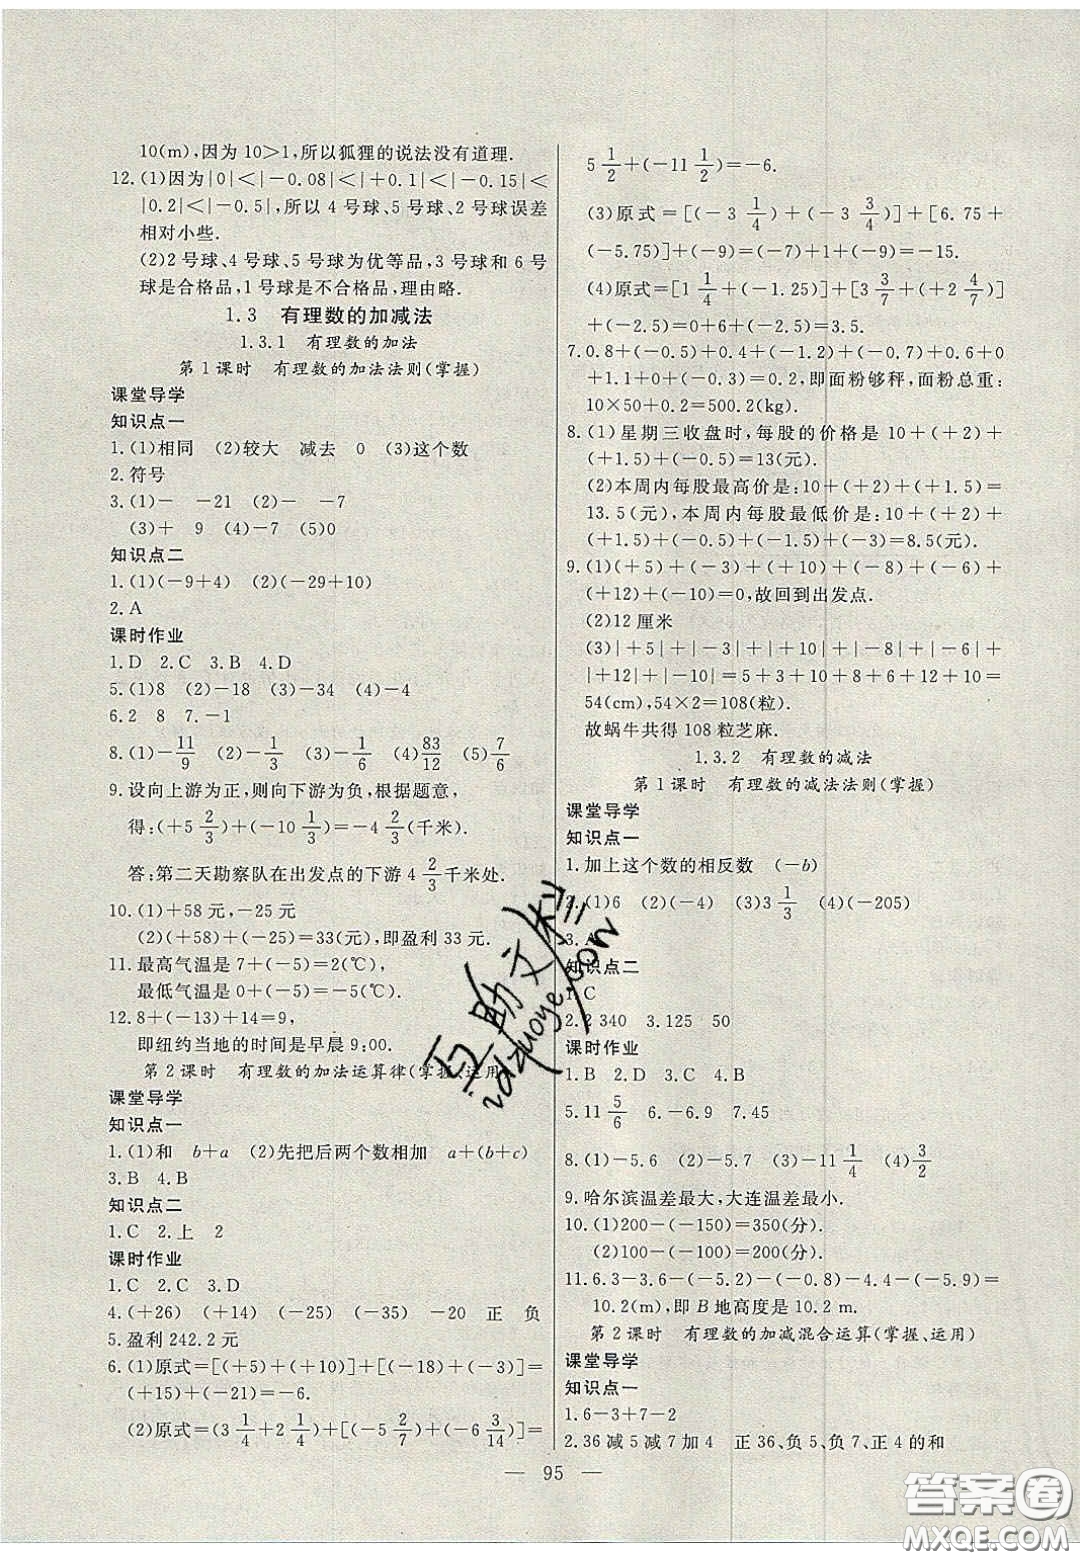 10(m),因为10>1,所以狐狸的说法没有道理.
12.(1)因为|0|<|-0.08|<|+0.1|<|-0.15|<
|0.2|<|-0.5|,所以4号球、5号球、2号球误差
相对小些.
(2)2号球、4号球、5号球为优等品,3号球和6号
球是合格品,1号球是不合格品,理由略.
1.3 有理数的加减法
1.3.1 有理数的加法
第1课时 有理数的加法法则(掌握)
课堂导学
知识点一
1.(1)相同 (2)较大 减去 0 (3)这个数
2.符号
3.(1)- -21 (2)- -7
(3)+ 9 (4)-7 (5)0
知识点二
1.(1)(-9+4) (2)(-29+10)
2.A
课时作业
1.D 2.C 3.B 4.D
5.(1)8 (2)-18 (3)-34 (4)-4
6.2 8 7.-1
8.(1)-11/9 (2)-1/3 (3)-1/6 (4)83/12 (5)7/6
9.设向上游为正,则向下游为负,根据题意,
得:(+5 2/3)+(-10 1/3)=-4 2/3(千米).
答:第二天勘察队在出发点的下游4 2/3千米处.
10.(1)+58元,-25元
(2)(+58)+(-25)=33(元),即盈利33元.
11.最高气温是7+(-5)=2(℃),
最低气温是0+(-5)=-5(℃).
12.8+(-13)+14=9,
即纽约当地的时间是早晨9:00.
第2课时 有理数的加法运算律(掌握、运用)
课堂导学
知识点一
1.(1)和 b+a (2)先把后两个数相加 a+(b+c)
3.B 4.B
知识点二
1.C 2.上 2
课时作业
1.C 2.C 3.D
4.(+26) (+14) (-25) (-35) -20 正 负
5.盈利242.2元
6.(1)原式=[(+5)+(+10)]+[(-18)+(-3)]=
(+15)+(-21)=-6.
(2)原式=(3 1/4+2 1/4)+[(-5 2/7)+(-6 3/14)]=
5 1/2+(-11 1/2)=-6.
(3)原式=[(-3 1/4)+(-3 3/4)]+[6.75+
(-5.75)]+(-9)=(-7)+1+(-9)=-15.
(4)原式=[1 1/4+(-1.25)]+[3 3/7+(+2 4/7)]
+(-2.5)=0+6+(-2.5)=3.5.
7.0.8+(-0.5)+(-1.2)+(-0.1)+0.6+0
+1.1+(-0.2)+(-0.3)=0.2,即面粉够秤,面粉总重:
10×50+0.2=500.2(kg).
8.(1)星期三收盘时,每股的价格是10+(+2)+
(+1.5)+(-0.5)=13(元).
(2)本周内每股最高价是:10+(+2)+(+1.5)=
13.5(元),本周内每股最低价是:10+(+2)+
(+1.5)+(-0.5)+(-1.5)+(-3)=8.5(元).
9.(1)(+5)+(-3)+(+10)+(-8)+(-6)+
(+12)+(-10)=0,故回到出发点.
(2)12厘米
(3)|+5|+|-3|+|+10|+|-8|+|-6|+
|+12|+|-10|=5+3+10+8+6+12+10=
54(cm),54×2=108(粒).
故蜗牛共得108粒芝麻.
1.3.2 有理数的减法
第1课时 有理数的减法法则(掌握)
课堂导学
知识点一
1.加上这个数的相反数 (-b)
2.(1)6 (2)(-4) (3)3 1/3 (4)(-205)
3.A
知识点二
1.C
2.2 340 3.125 50
课时作业
1.B 2.D 3.C 4.B
5.11 5/6 6.-9 7.45
8.(1)-5.6 (2)-5.7 (3)-11 1/4 (4)3/2
9.哈尔滨温差最大,大连温差最小.
10.(1)200-(-150)=350(分).
(2)100-(-100)=200(分).
11.6.3-3.6-(-5.8)-(-2.2)-4.4-(-5.9)=
10.2(m),即B地高度是10.2 m.
第2课时 有理数的加减混合运算(掌握、运用)
课堂导学
知识点一
1.6-3+7-2
2.36减5减7加4 正36、负5、负7、正4的和
— 95 —
互助文栏
idzuoye.com
答案圈
MXQE.COM